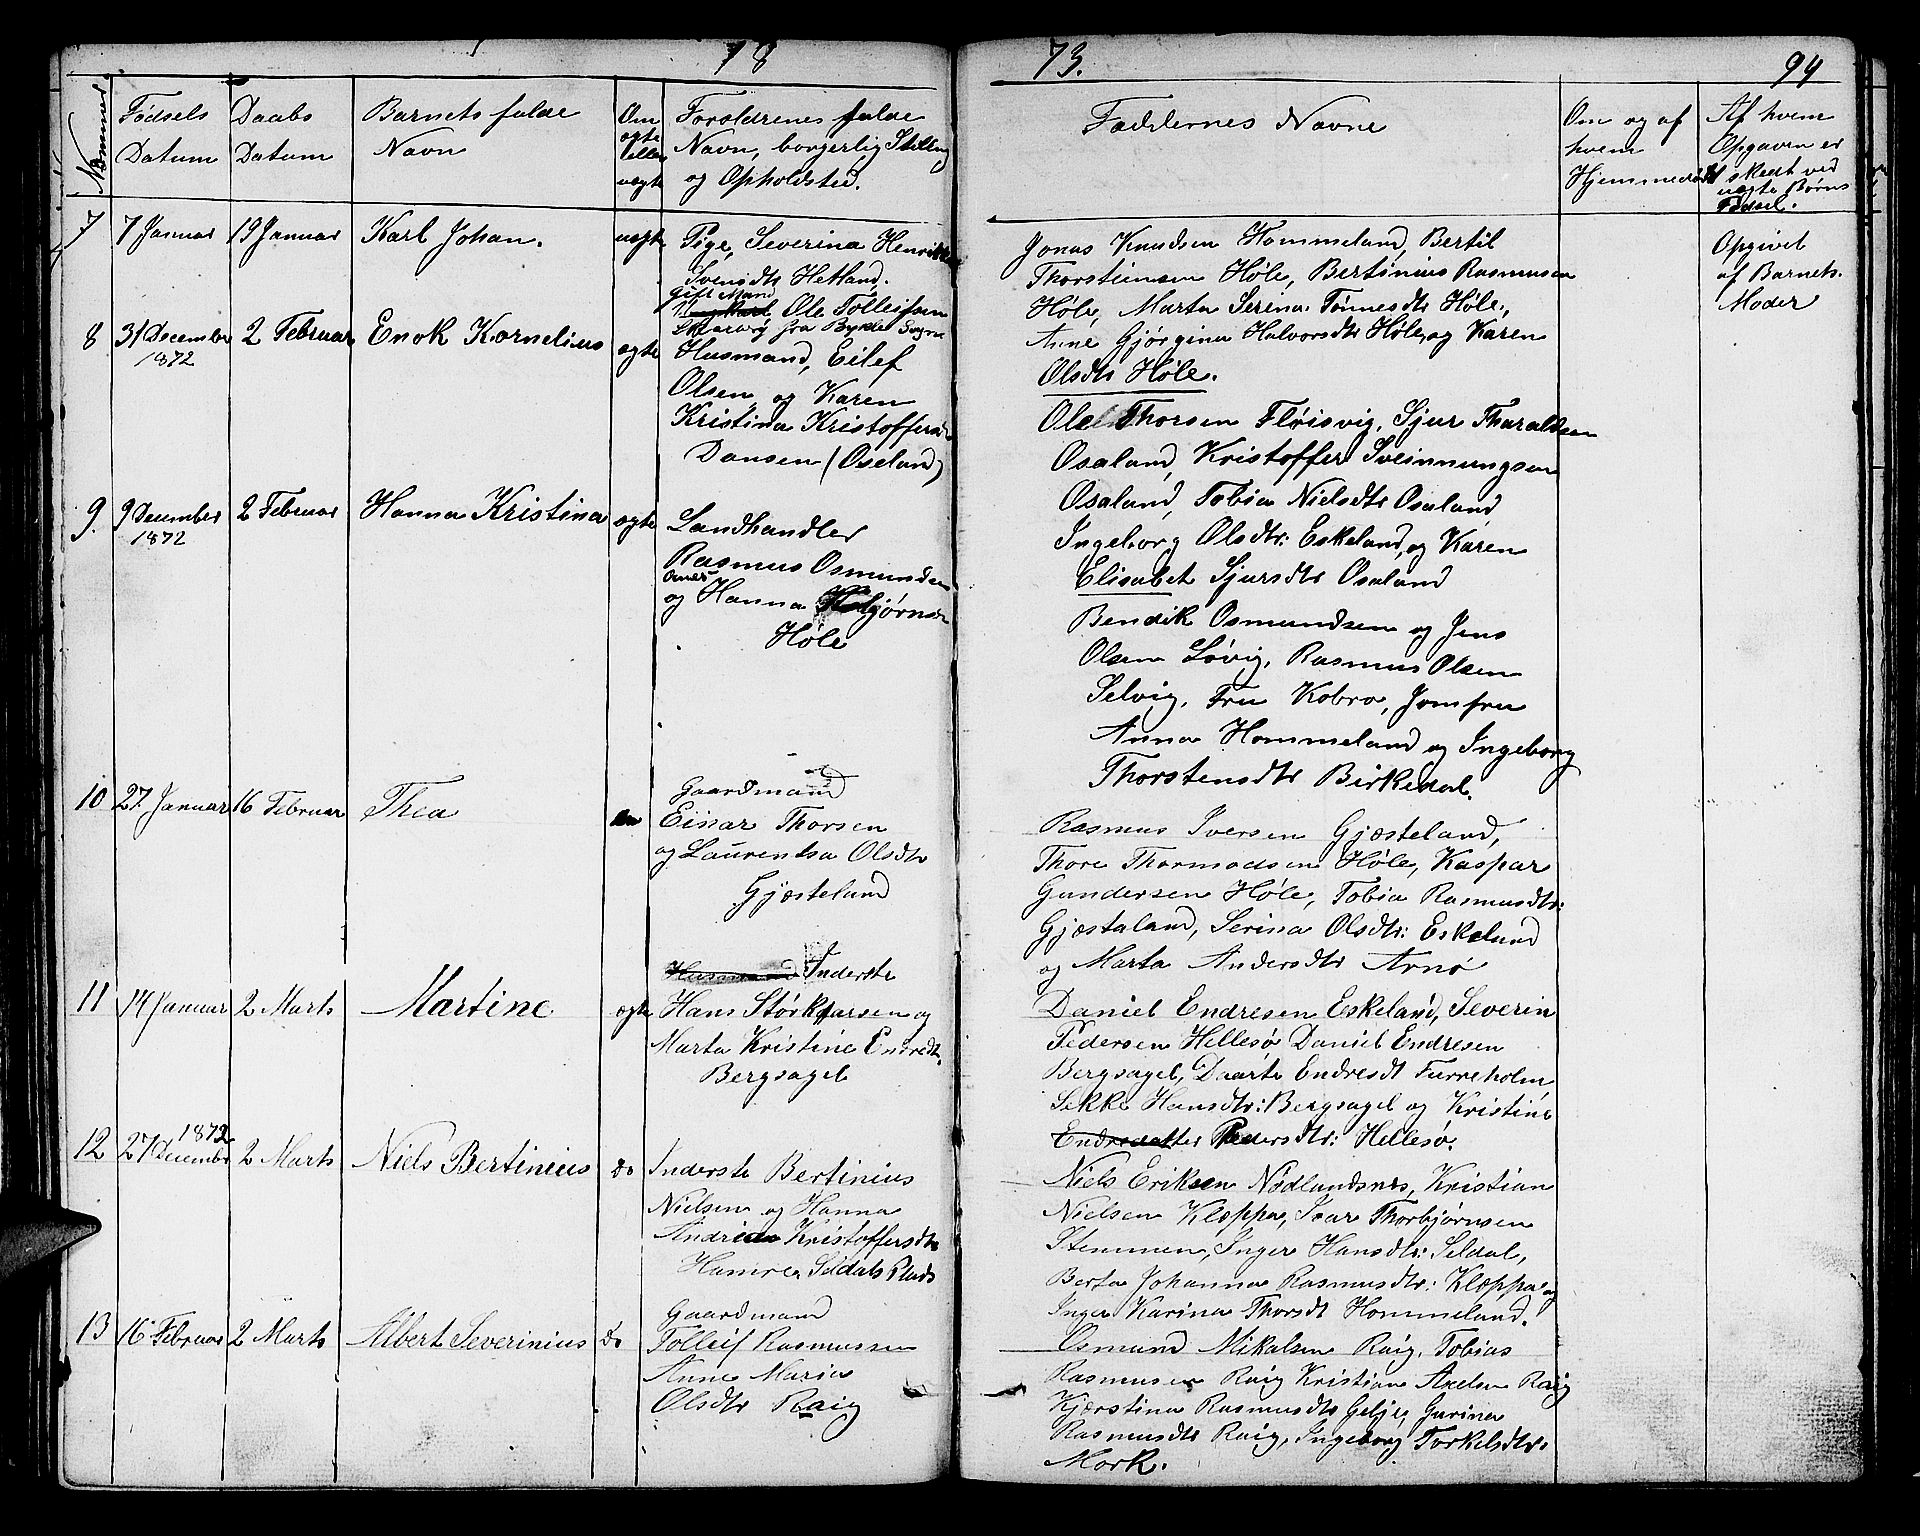 18
73.
94
Nommer
Fødsels Datum
Daabs Datum
Barnets fulde Navn
Om ægte eller uægte
Forældrenes fulde
Navn, borgerlig Stilling
og Opholdsted.
Faddernes Navne
Om og af
hvem
Hjemmedøbt
Af hvem
Opgaven er
skedt ved
uægte Børns
Fødsel.
7 7 Januar 19 Januar Karl Johan. uægte
Pige, Severina Henrikke
Svensdtr Hetland.
Gift Mand
Ole Tolleifsen
fra Bykle Sogn
Jonas Knudsen Hommeland, Bertil
Thorsteinsen Høle, Bertinius Rasmusen
Høle, Marta Serina Tønnesdtr Høle,
Anne Gjørgina Halvorsdtr Høle og Karen
Olsdtr Høle.
Opgivet
af Barnets
Moder
8 31 December 1872 2 Februar Enok Kornelius ægte
Husmand, Eilef
Olsen og Karen
Kristina Kristoffersd
Dansen (Oseland)
Ole Thorsen Fløisvig, Sjur Tharaldsen
Osaland, Kristoffer Sveinnungsen
Osaland, Tobia Nielsdtr Osaland
Ingeborg Olsdtr: Eskeland, og Karen
Elisabet Sjursdtr Osaland
9. 9 December 1872 2 Februar Hanna Kristina ægte
Landhandler
Rasmus Osmundsen
og Hanna
Høle
Bendik Osmundsen og Jens
Olsen Løvig, Rasmus Olsen
Selvig, Fru Kobro, Jomfru
Anna Hommeland og Ingeborg
Thorstensdtr Birkedal.
10 27 Januar 16 Februar Thea
Gaardmand
Einar Thorsen
og Laurentsa Olsdtr
Gjæsteland
Rasmus Iversen Gjæsteland,
Thore Thormodsen Høle, Kaspar
Gundersen Høle, Tobia Rasmusdtr:
Gjæstaland, Serina Olsdtr: Eskeland
og Marta Andersdtr Arnø
11 14 Januar 2 Marts Martine ægte
Husmand Inderste
Hans Størkersen og
Marta Kristine Endredt.
Bergsagel
Daniel Endresen Eskeland, Severin
Pedersen Hellesø Daniel Endresen
Bergsagel, Daarte Endresdt Furreholm
Sekke Hansdtr: Bergsagel og Kristine
Endredatter Pedersdtr: Hellesø.
12 27 December 1872 2 Marts Niels Bertinius do
Inderste Bertinius
Nielsen og Hanna
Andrida Kristoffersdtr
Hamre, Seldals Plads
Niels Eriksen Nødlandsnes, Kristian
Nielsen Klæppa, Ivar Thorbjørnsen
Stemmen, Inger Hansdtr: Seldal,
Berta Johanna Rasmusdtr: Klæppa og
Inger Karina Thorsdt Hommeland.
13 16 Februar 2 Marts Albert Severinius do
Gaardmand
Tolleif Rasmussen
Anne Maria
Olsdtr Raig
Osmund Mikalsen Raig, Tobias
Rasmusen Raig Kristian Axelsen Raig
Kjærstina Rasmusdtr Gilje, Gurina
Rasmusdtr Raig, Ingeborg Torkelsdtr:
Mork.